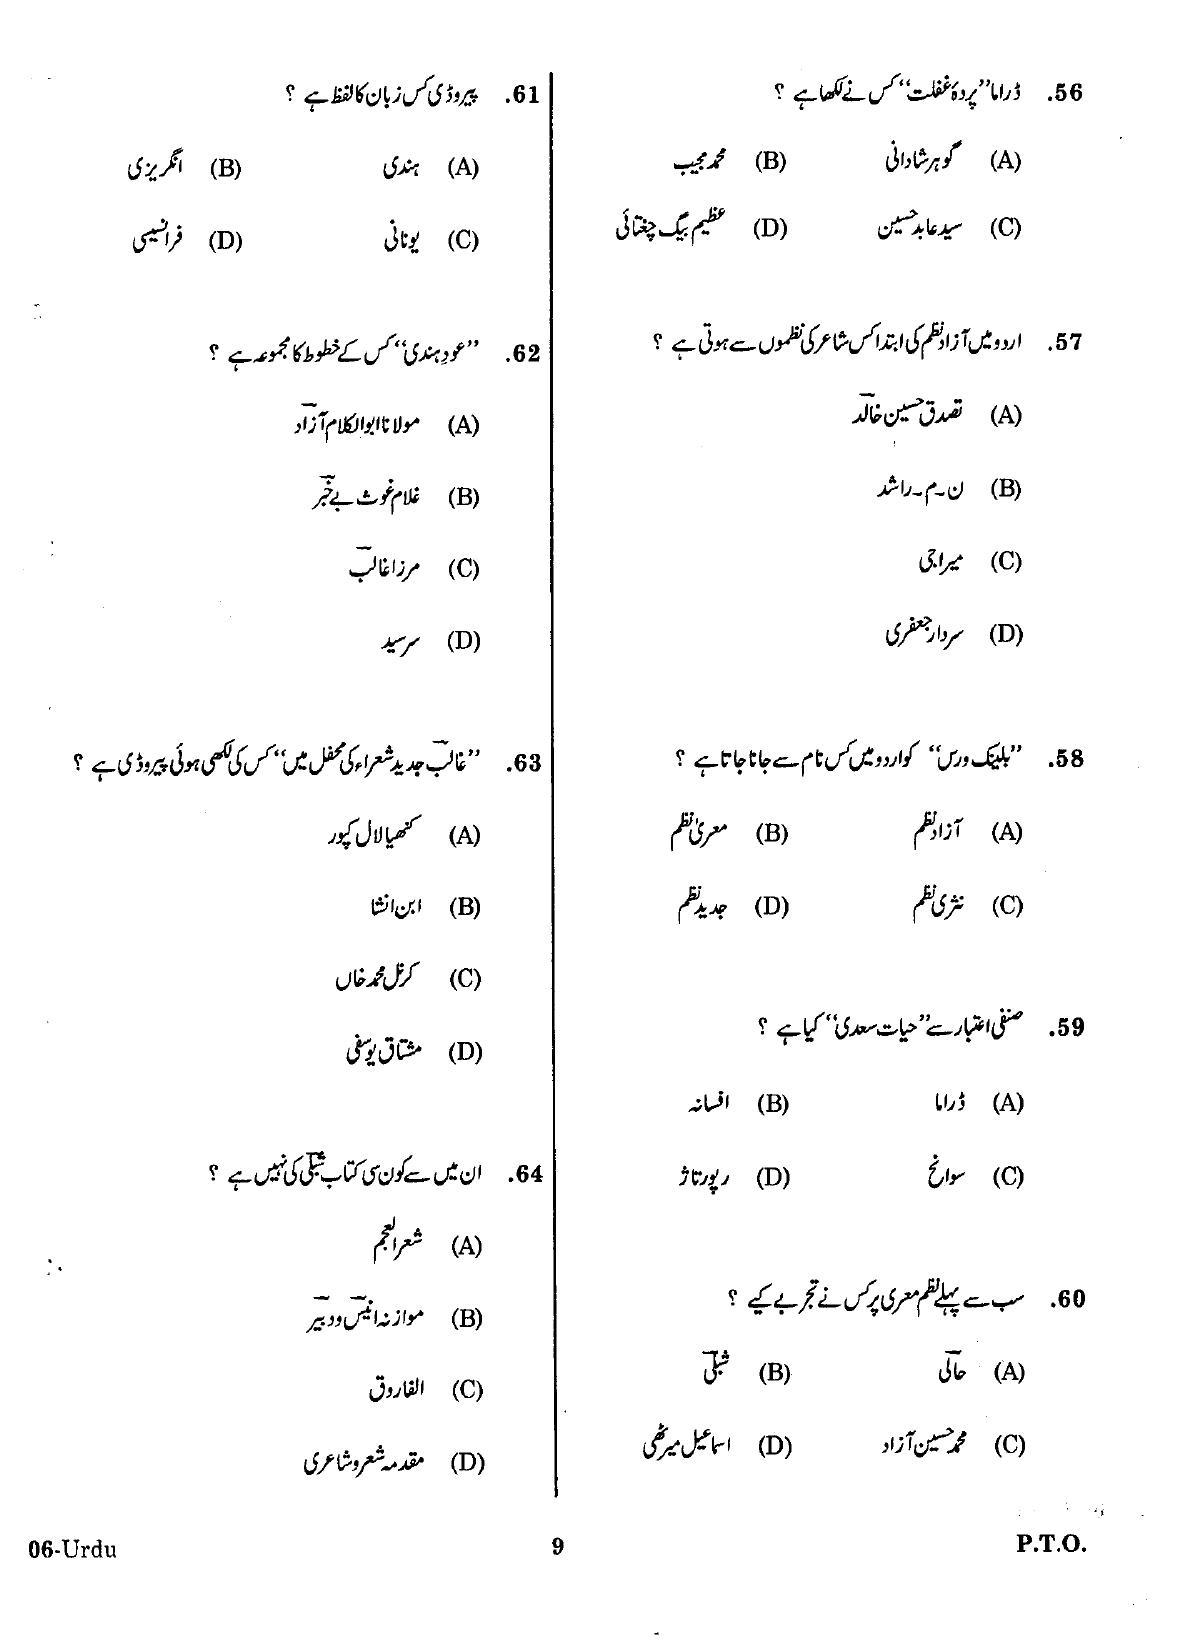 56. ڈراما ”پردۂ غفلت“ کس نے لکھا ہے ؟
(A) گوہر شادانی (B) محمد مجیب
(C) سید عابد حسین (D) عظیم بیگ چغتائی
57. اردو میں آزاد نظم کی ابتدا کس شاعر کی نظموں سے ہوتی ہے ؟
(A) تصدق حسین خالد
(B) ن۔م۔راشد
(C) میراجی
(D) سردار جعفری
58. ”بلینک ورس“ کو اردو میں کس نام سے جانا جاتا ہے ؟
(A) آزاد نظم (B) معریٰ نظم
(C) نثری نظم (D) جدید نظم
59. صنفی اعتبار سے ”حیات سعدی“ کیا ہے ؟
(A) ڈراما (B) افسانہ
(C) سوانح (D) رپورتاژ
60. سب سے پہلے نظم معری پر کس نے تجربے کیے ؟
(A) حالی (B) شبلی
(C) محمد حسین آزاد (D) اسماعیل میرٹھی
61. پیروڈی کس زبان کا لفظ ہے ؟
(A) ہندی (B) انگریزی
(C) یونانی (D) فرانسیسی
62. ”عود ہندی“ کس کے خطوط کا مجموعہ ہے ؟
(A) مولانا ابوالکلام آزاد
(B) غلام غوث بے خبر
(C) مرزا غالب
(D) سرسید
63. ”غالب جدید شعراء کی محفل میں“ کس کی لکھی ہوئی پیروڈی ہے ؟
(A) کنھیا لال کپور
(B) ابن انشا
(C) کرنل محمد خاں
(D) مشتاق یوسفی
64. ان میں سے کون سی کتاب شبلی کی نہیں ہے ؟
(A) شعر العجم
(B) موازنہ انیس و دبیر
(C) الفاروق
(D) مقدمہ شعر و شاعری
06-Urdu 9 P.T.O.